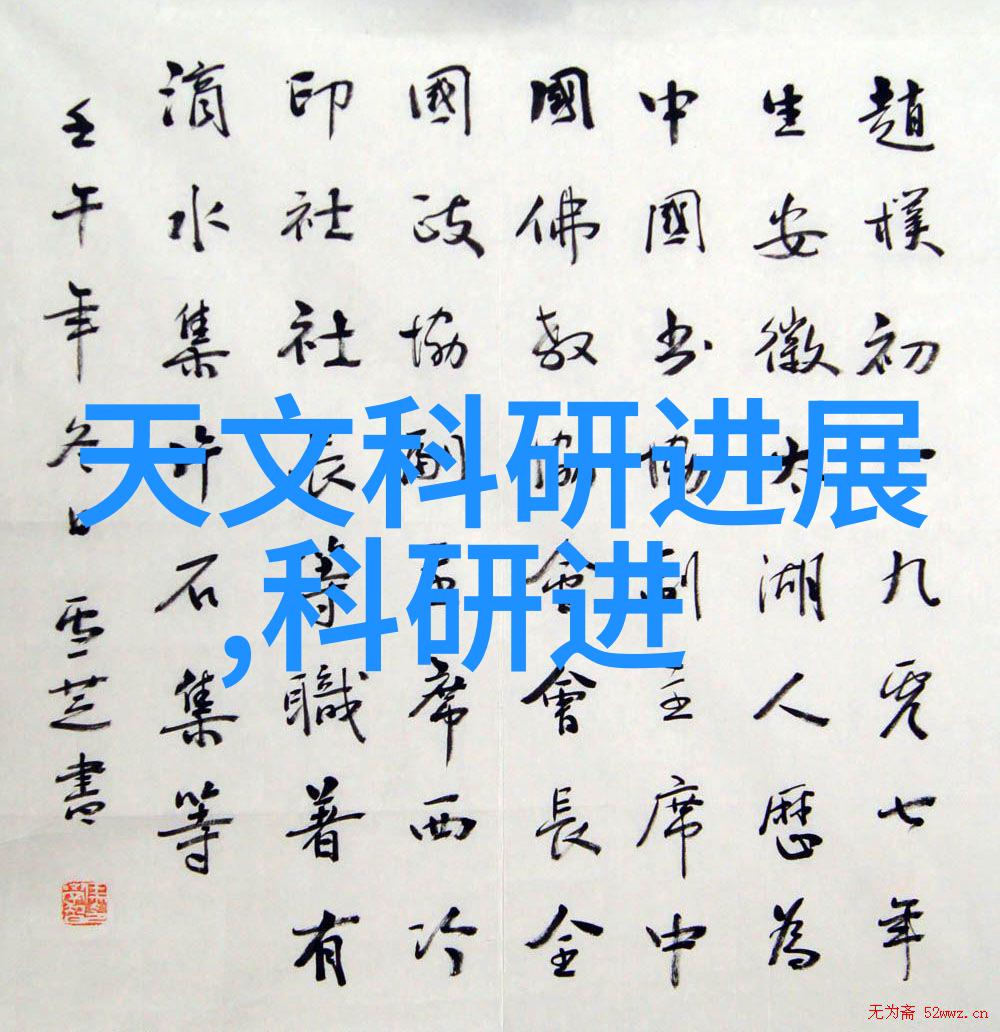 趙樸初一九零七年
生安徽太湖人歷為
中國书協副主席中
國佛教協會會長全
國政協副主席西冷
印社社長等職著有
滴水集片石集等
壬午年冬日雪芝書
天文科研进展
,科研进
无为斋 52wwz.cn